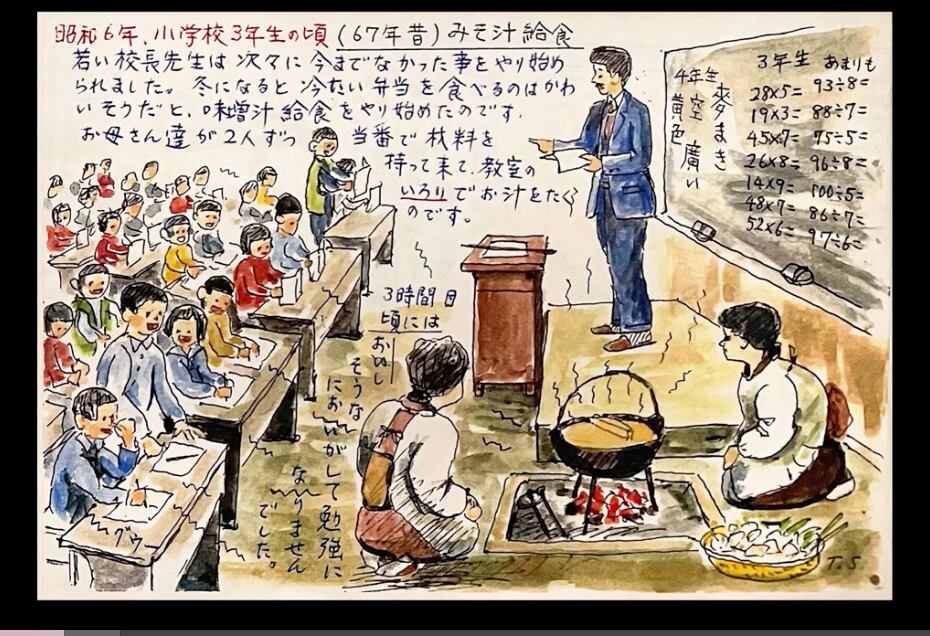 昭和6年、小学校3年生の頃(67年昔)みそ汁給食
若い校長先生は次々に今までなかった事をやり始め
られました。冬になると冷たい弁当を食べるのはかわ
いそうだと、味噌汁給食をやり始めたのです。
お母さん達が2人ずつ当番で材料を
持って来て、教室の
いろりでお汁をたく
のです。
3時間目
頃には
おいし
そうな
においがして勉強に
なりません
でした。
グウー
4年生
麦まき
空 廣い
黄色
3年生 あまりも
28×5=
19×3=
45×7=
26×8=
14×9=
48×7=
52×6=
93÷8=
88÷7=
75÷5=
96÷8=
100÷5=
86÷7=
97÷6=
T.S.